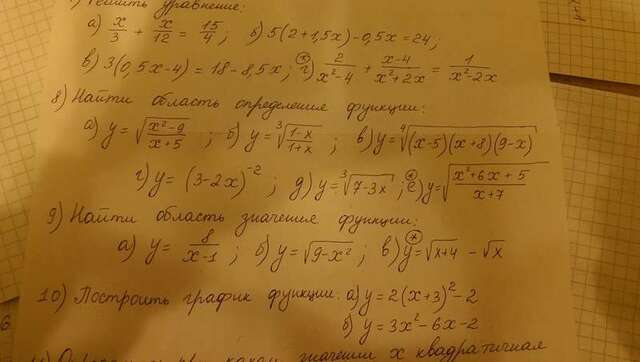 Решить уравнение:
а) x/3 + x/12 = 15/4 ; б) 5(2+1,5x)-0,5x=24;
в) 3(0,5x-4) = 18-8,5x; г) 2/(x²-4) + (x-4)/(x²+2x) = 1/(x²-2x)
8) Найти область определения функции:
а) y = √((x²-9)/(x+5)) ; б) y = ∛((1-x)/(1+x)) ; в) y = ∜((x-5)(x+8)(9-x))
г) y = (3-2x)⁻² ; д) y = ∛(7-3x) ; е) y = √((x²+6x+5)/(x+7))
9) Найти область значения функции:
а) y = 8/(x-1) ; б) y = √(9-x²) ; в) y = √(x+4) - √x
10) Построить график функции: а) y = 2(x+3)²-2
б) y = 3x²-6x-2
значении x квадратичная